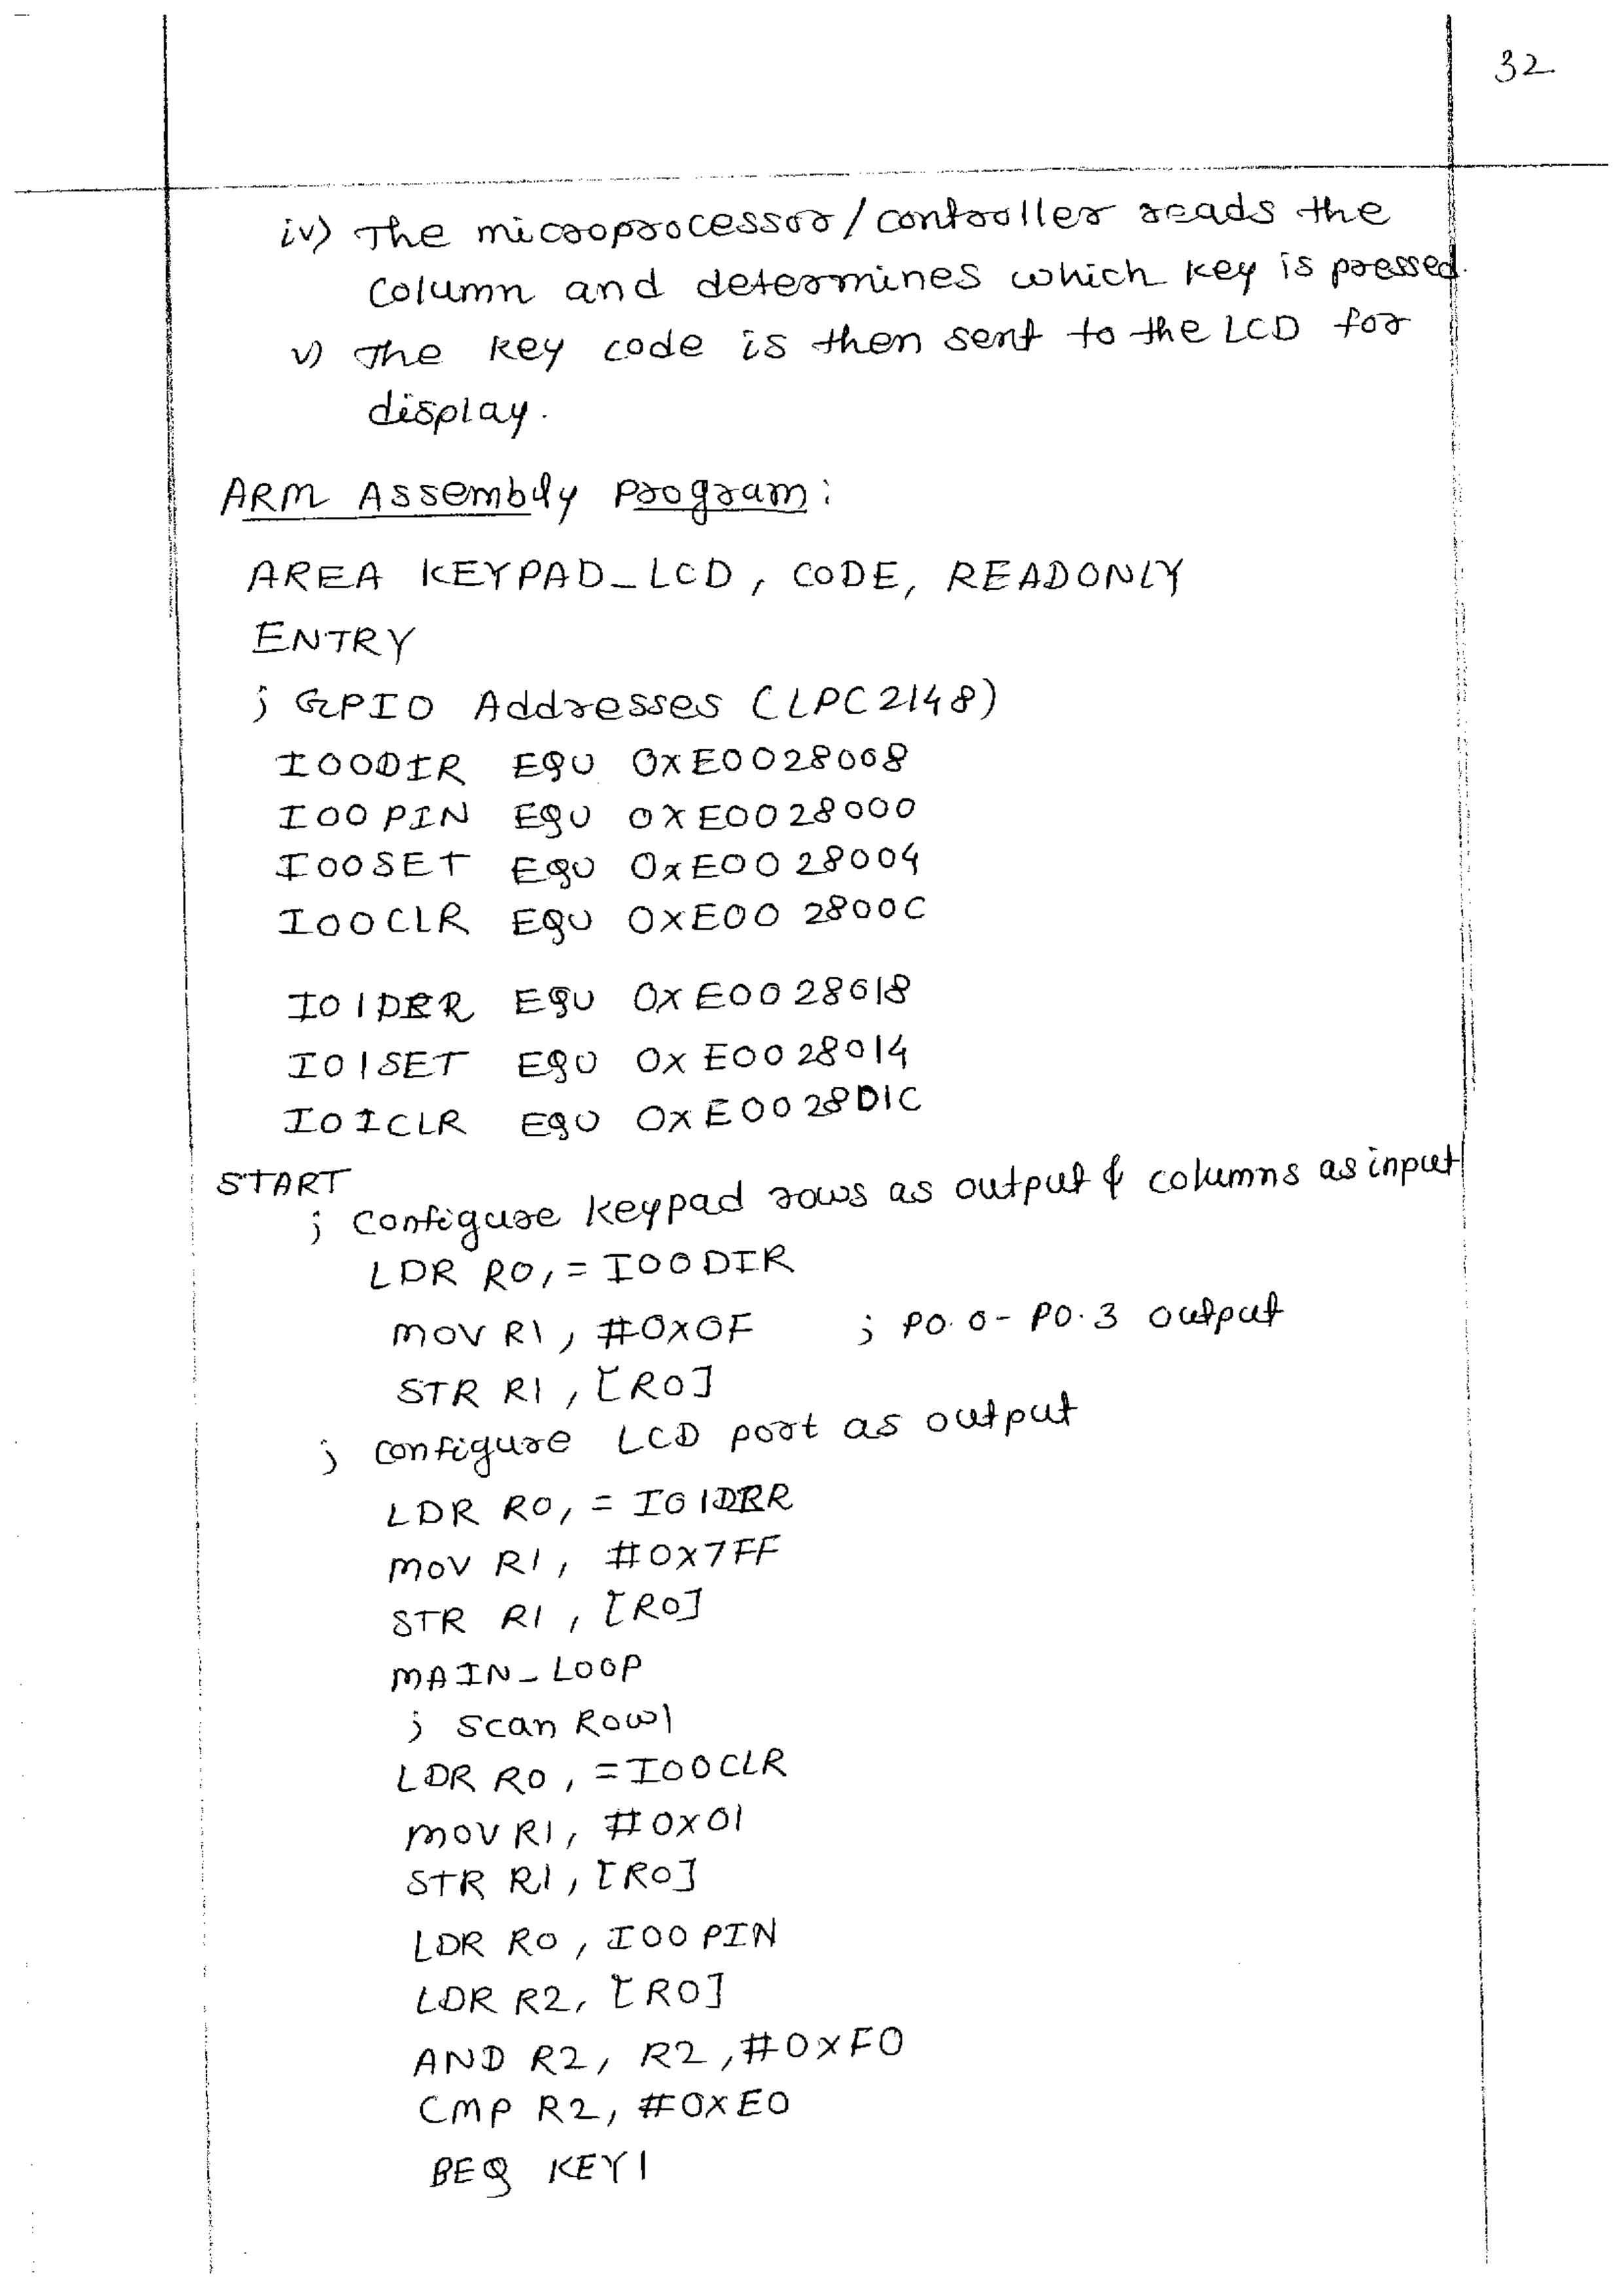 32
iv) The microprocessor/controller reads the
column and determines which key is pressed.
v) The key code is then sent to the LCD for
display.
ARM Assembly Program:
AREA KEYPAD_LCD, CODE, READONLY
ENTRY
; GPIO Addresses (LPC2148)
IO0DIR EQU 0xE0028008
IO0PIN EQU 0xE0028000
IO0SET EQU 0xE0028004
IO0CLR EQU 0xE002800C
IO1DRR EQU 0xE0028018
IO1SET EQU 0xE0028014
IO1CLR EQU 0xE0028D1C
START
; configure keypad rows as output & columns as input
LDR R0, = IO0DIR
MOV R1, #0x0F ; P0.0 - P0.3 output
STR R1, [R0]
; configure LCD port as output
LDR R0, = IO1DRR
MOV R1, #0x7FF
STR R1, [R0]
MAIN_LOOP
; scan Row1
LDR R0, =IO0CLR
MOV R1, #0x01
STR R1, [R0]
LDR R0, IO0PIN
LDR R2, [R0]
AND R2, R2, #0xF0
CMP R2, #0xE0
BEQ KEY1